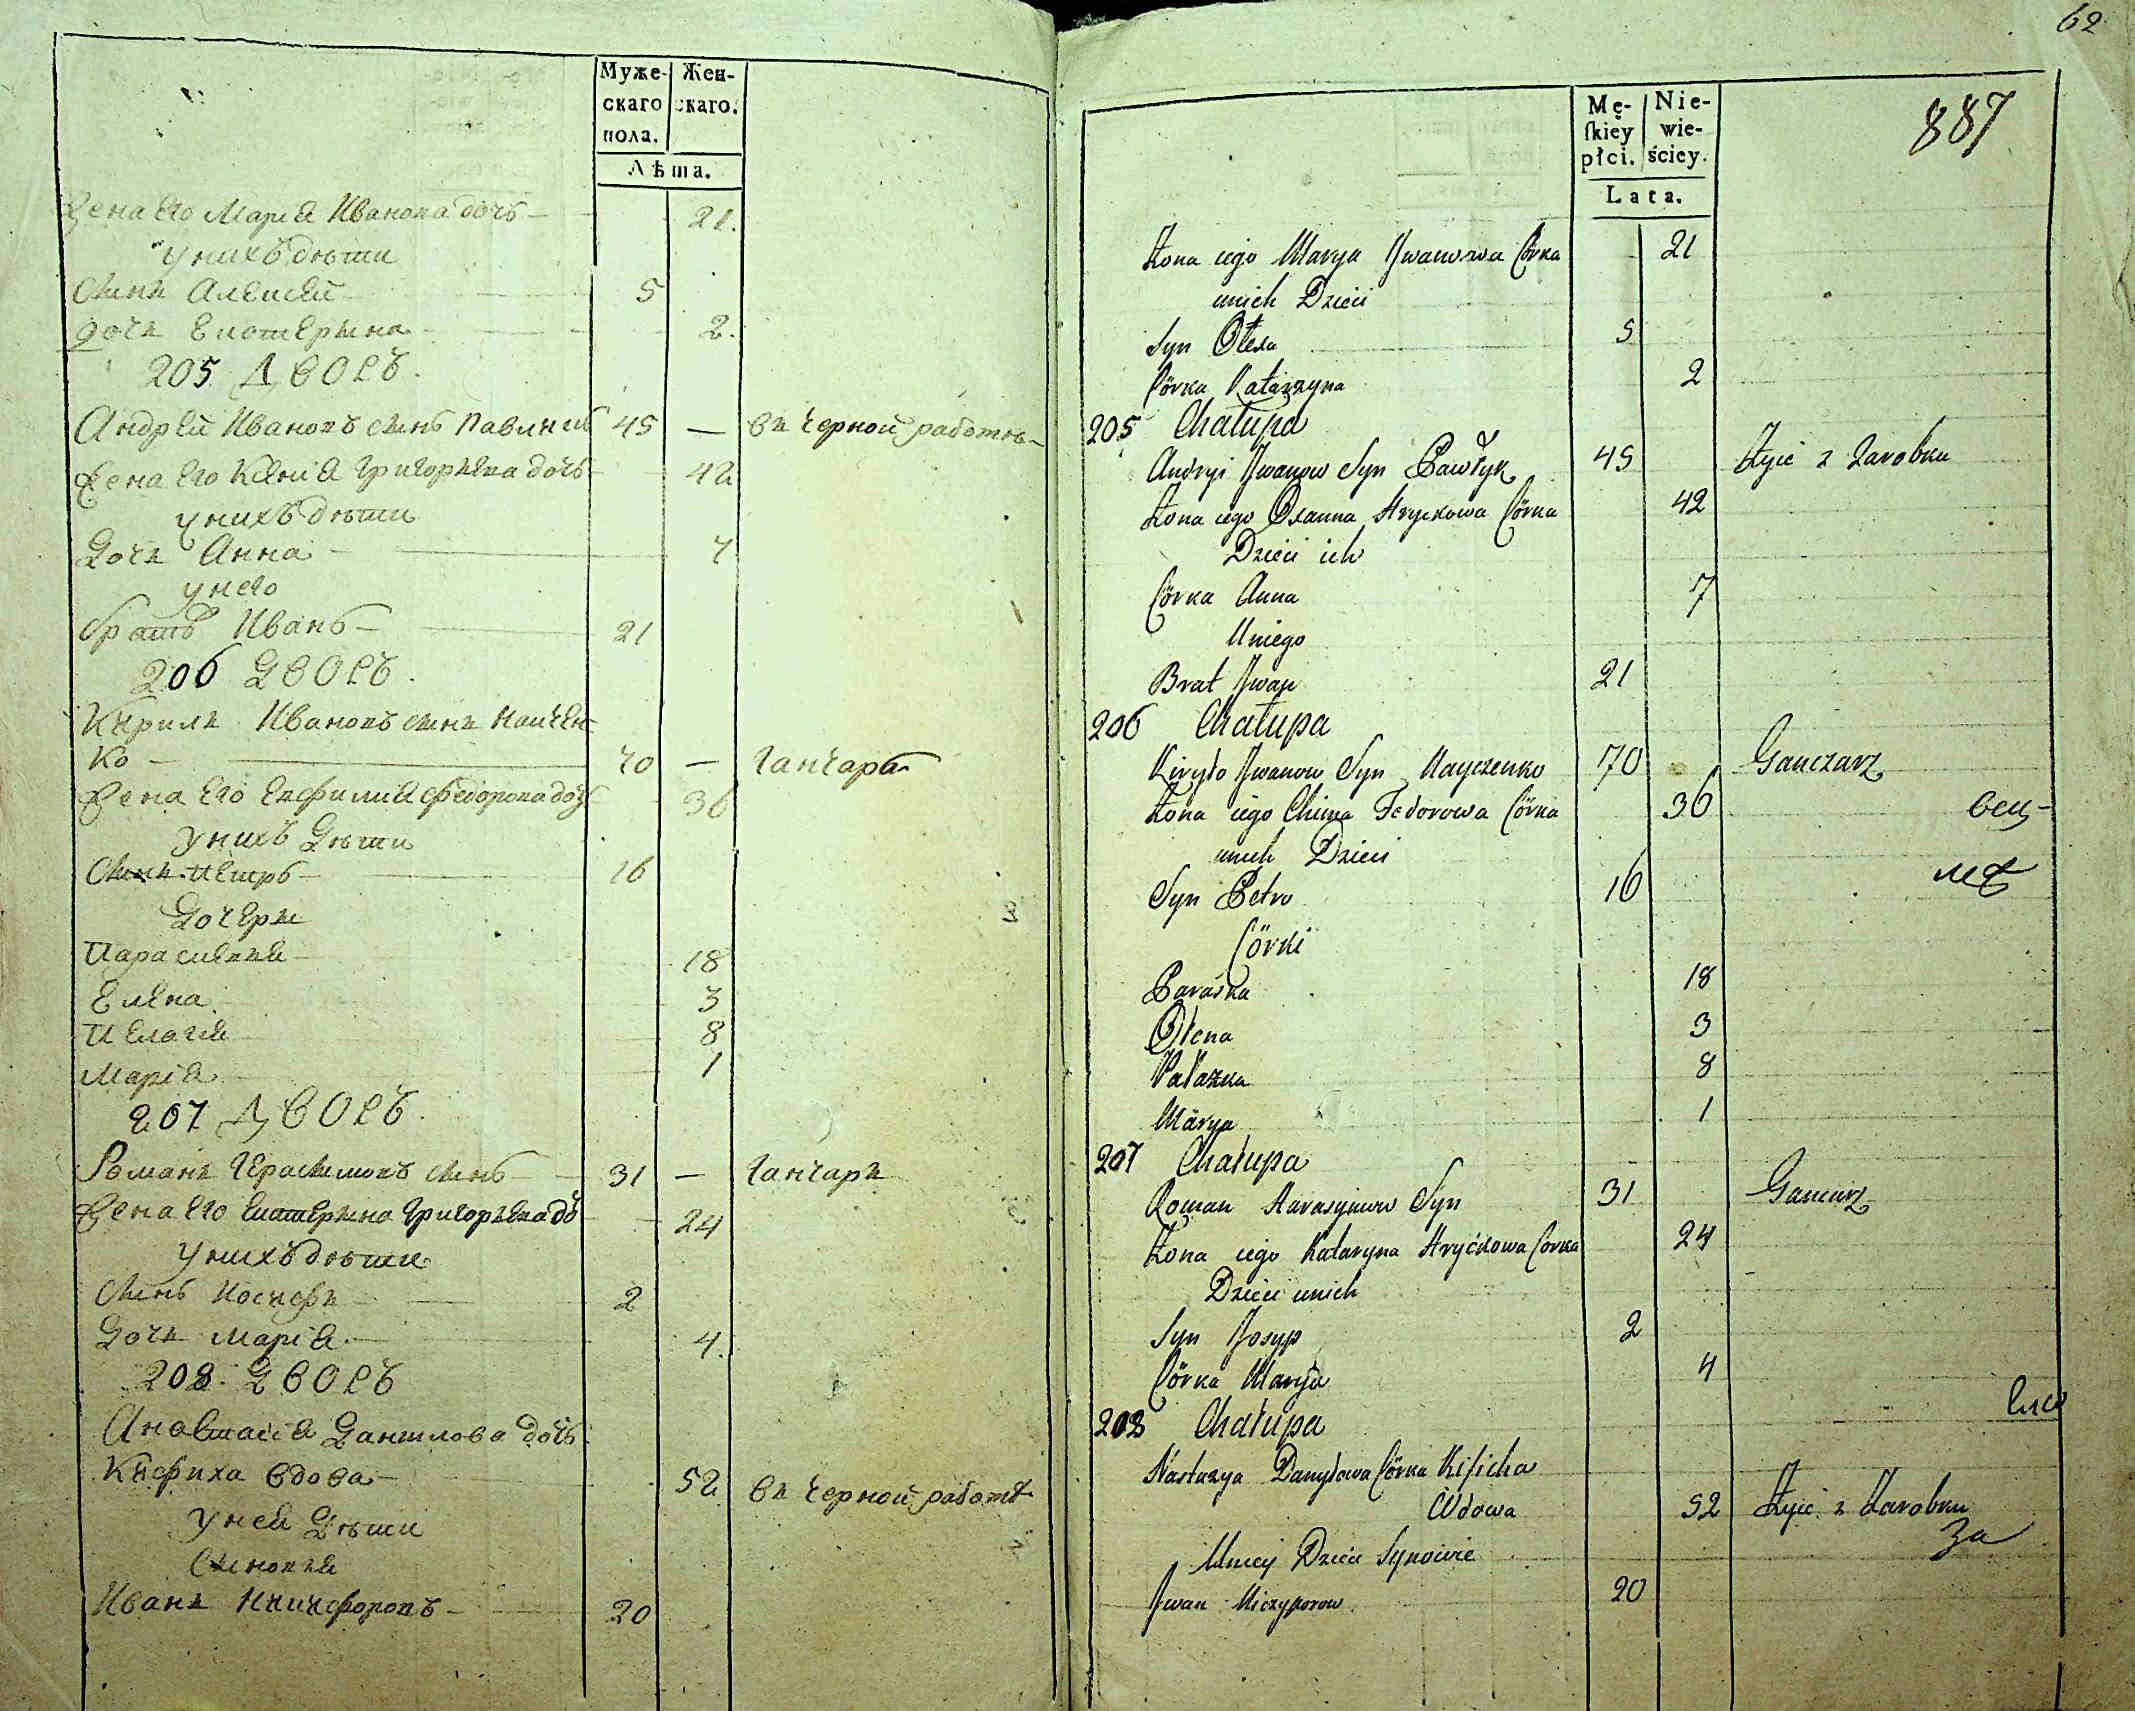 62
Муже-
скаго
пола.
Жен-
скаго.
Лѣта.
Жена его Марiя Иванова дочь 21.
у нихъ дѣти
Сынъ Алексѣй 5
дочь Екатерина 2.
205 Дворъ.
Андрей Ивановъ сынъ Павликъ 45 — въ черной работѣ
Жена его Ксенiя Григорьева дочь 42
у нихъ дѣти
Дочь Анна 7
у него
братъ Иванъ 21
206 Дворъ.
Кирилъ Ивановъ сынъ Наичен-
ко 70 — Ганчаръ
Жена его Евфимiя Федорова дочь 36
у нихъ Дѣти
Сынъ Петръ 16
Дочери
Параскевiя 18
Елена 3
Пелагiя 8
Марiя 1
207 Дворъ.
Романъ Герасимовъ сынъ 31 — Ганчаръ
Жена его Екатерина Григорьева дочь 24
у нихъ дѣти
Сынъ Iосифъ 2
Дочь Марiя 4.
208. Дворъ
Анастасiя Данилова дочь
Кифиха вдова 52 въ черной работѣ
у ней Дѣти
Сыновья
Иванъ Никифоровъ 20
Mę-
ſkiey
płci.
Nie-
wie-
ściey.
Lata.
887
Żona iego Marya Jwanowa Córka 21
unich Dzieci
Syn Ołexa 5
Córka Katarzyna 2
205 Chałupa
Andryi Jwanow Syn Pawłyk 45 Żyie z Zarobku
Żona iego Oxanna Hryckowa Córka 42
Dzieci ich
Córka Anna 7
Uniego
Brat Jwan 21
206 Chałupa
Kiryło Jwanow Syn Nayczenko 70 Ganczarz
Żona iego Chima Fedorowa Córka 36
вец-
unich Dzieci
Syn Petro 16
Córki
Paraska 18
Ołena 3
Pałazka 8
Marya 1
207 Chałupa
Roman Harasymow Syn 31 Gancarz
Żona iego Kataryna Hryćkowa Corka 24
Dzieci unich
Syn Josyp 2
Córka Marya 4
208 Chałupa
Nastazya Danyłowa Córka Kiſicha
Wdowa 52 Żyie z Zarobku
За
Uniey Dzieci Synowie
Jwan Niczyporow 20